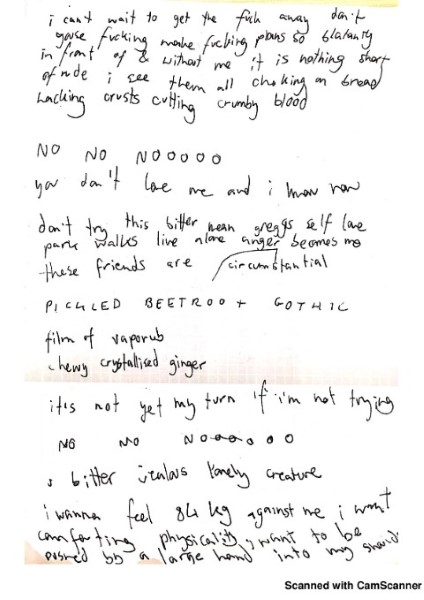 i can't wait to get the fuck away don't
youse fucking make fucking plans so blatantly
in front of & without me it is nothing short
of rude i see them all choking on bread
hacking crusts cutting crumby blood
NO NO NOOOOO
you don't love me and i know now
don't try this bitter mean greggs self love
park walks live alone anger becomes me
these friends are circumstantial
PICKLED BEETROOT GOTHIC
film of vaporub
chewy crystallised ginger
it's not yet my turn if i'm not trying
NO NO NOOOOOO
bitter jealous lonely creature
i wanna feel 84 kg against me i want
comforting physicality i want to be
pushed by a large hand into my
Scanned with CamScanner